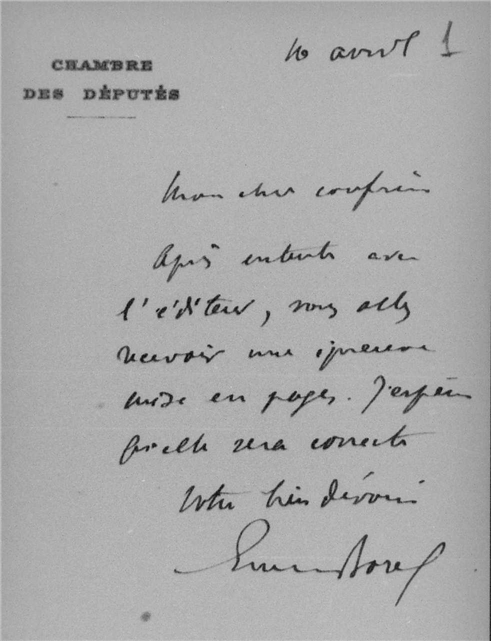 10 avril 1
CHAMBRE
DES DÉPUTÉS
Mon cher confrère
Après entente avec
l'éditeur, vous allez
recevoir une épreuve
mise en pages. J'espère
qu'elle sera correcte
Votre bien dévoué
Emile Borel